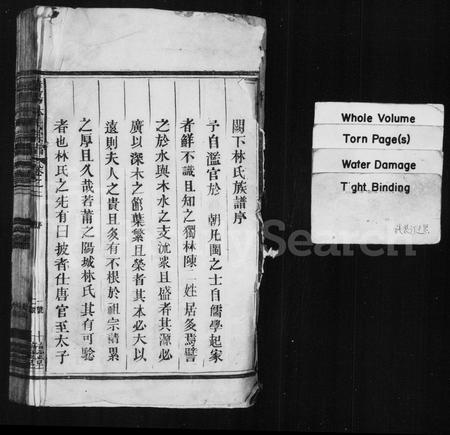 闕下林氏族譜序
予自濫官於 朝凡閩之士自儒學起家
者鮮不識且知之獨林陳二姓居多焉譬
之於水與木水之支沠衆且盛者其源必
廣以深木之節葉繁且榮者其本必大以
遠則夫人之貴且衆有不根於祖宗積累
之厚且久哉若莆之陽城林氏其有可騐
者也林氏之先有曰披者仕唐官至太子
Whole Volume
Torn Page(s)
Water Damage
Tight Binding
Search